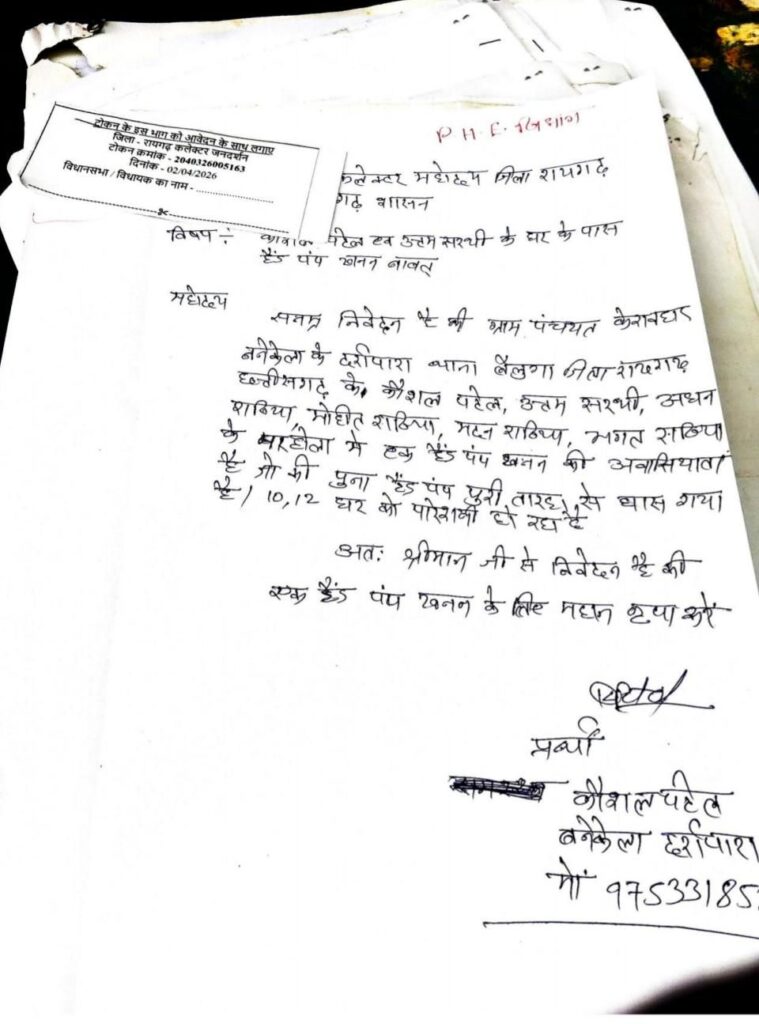 P. H. E. विभाग
टोकन के इस भाग को आवेदन के साथ लगाए
जिला - रायगढ़ कलेक्टर जनदर्शन
टोकन क्रमांक - 2040326005163
दिनांक - 02/04/2026
विधानसभा / विधायक का नाम -
कलेक्टर महोदय जिला रायगढ़
गढ़ शासन
विषय ÷ पटेल एव उत्तम सरथी के घर के पास
हैंड पंप खनन बावत्
महोदय
सनम्र निवेदन है की ग्राम पंचयत
बनेकेला के दर्रापारा थाना जिला रायगढ़
छत्तीसगढ़ के कौशल पटेल, उत्तम सरथी, अधन
राठिया, मोहीत राठिया, मदन राठिया, भगत राठिया
के मे एक हैंड पंप खनन की
है जो की पुना हैंड पंप पुरी तारह से धास गया
है। 10,12 घर को हो रहा है
अतः श्रीमान जी से निवेदन है की
एक हैंड पंप खनन के लिए महान कृपा करे
प्रर्थी
कौशल पटेल
बनेकेला दर्रापारा
मों 97533185